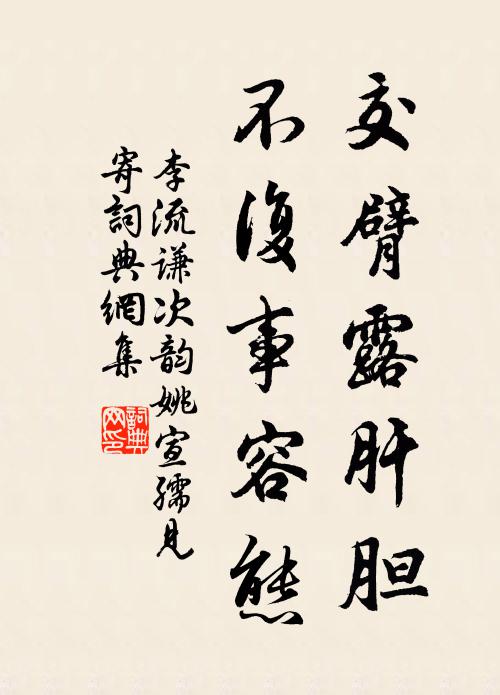 交臂露肝胆
不復事容態
李流谦次韵姚宣孺見
寄詞典網集
詞典网印